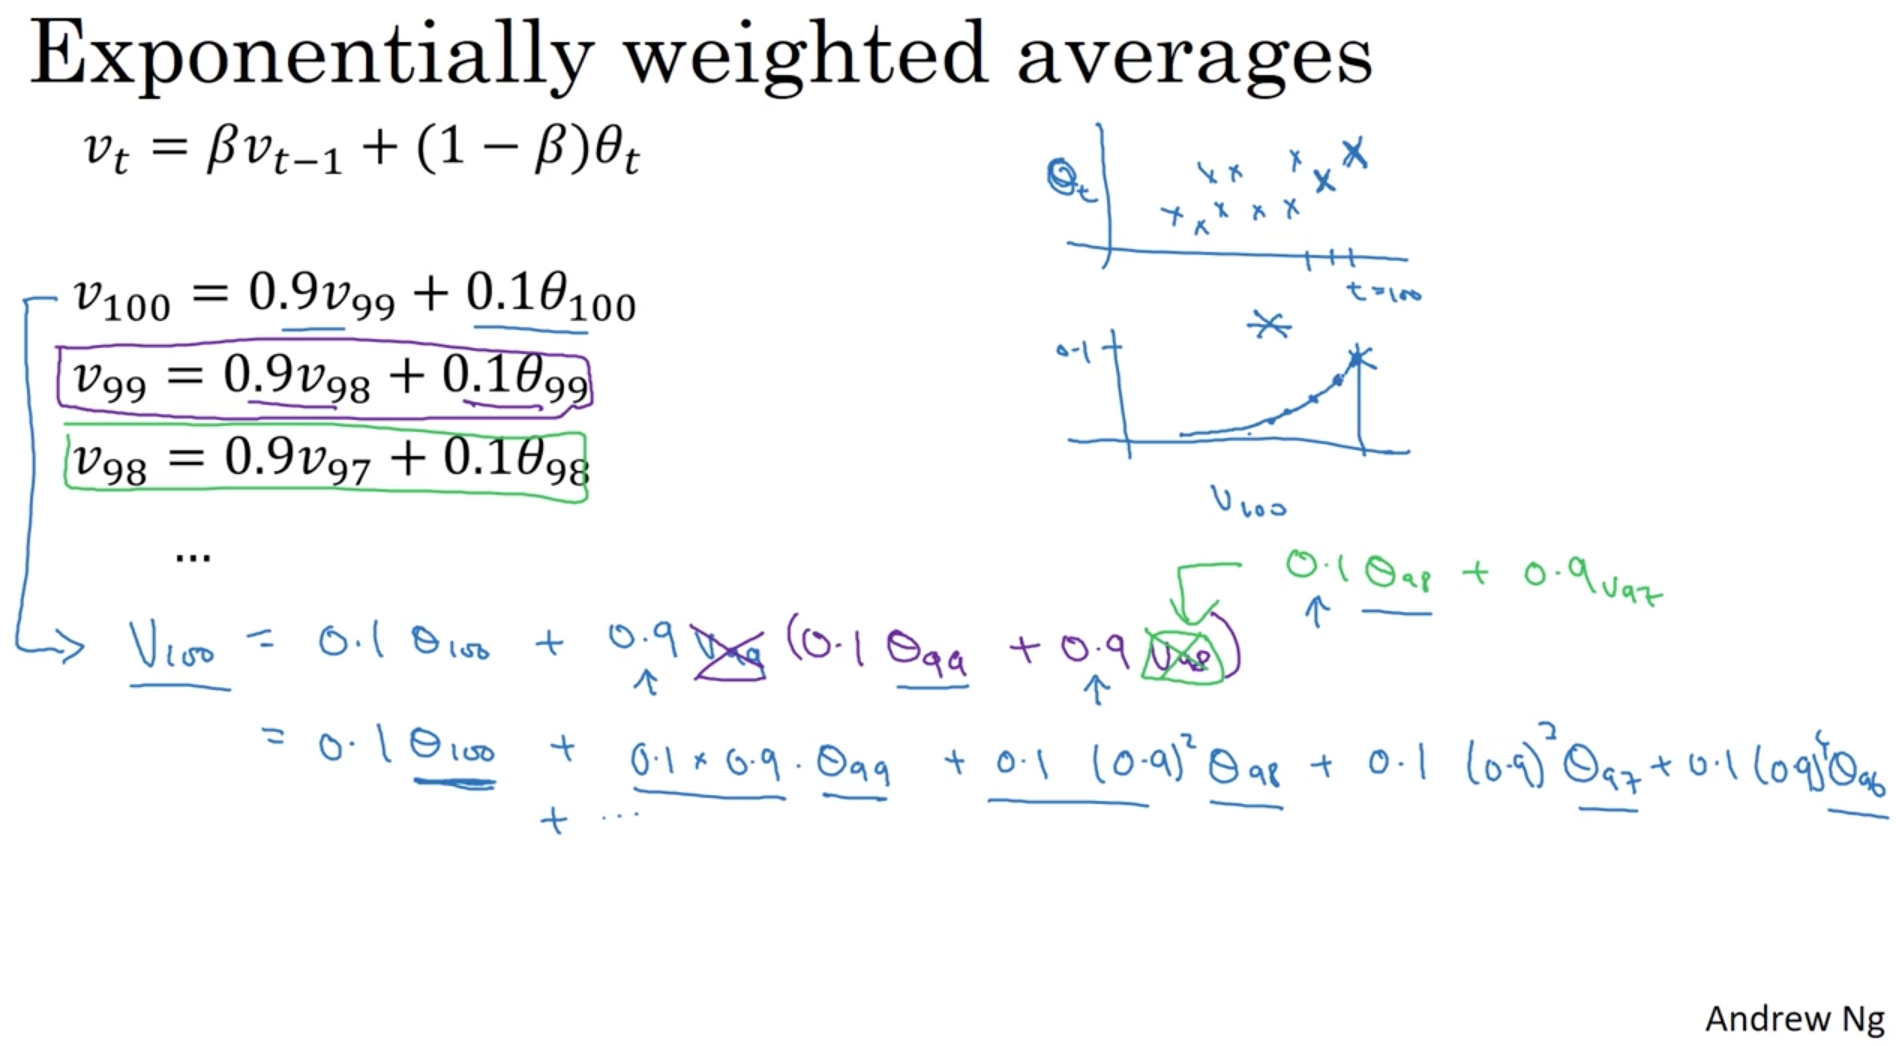 Exponentially weighted averages
v_t = βv_{t−1} + (1 − β)θ_t
θ_t
t=100
v_100 = 0.9v_99 + 0.1θ_100
0.1
v_99 = 0.9v_98 + 0.1θ_99
v_98 = 0.9v_97 + 0.1θ_98
V_100
...
0.1 θ_98 + 0.9 v_97
V_100 = 0.1 θ_100 + 0.9 v_99 (0.1 θ_99 + 0.9 v_98)
= 0.1 θ_100 + 0.1 × 0.9 · θ_99 + 0.1 (0.9)^2 θ_98 + 0.1 (0.9)^3 θ_97 + 0.1 (0.9)^4 θ_96
+ ...
Andrew Ng